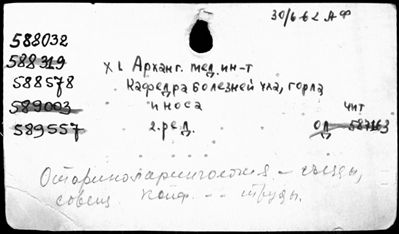 30/6-62 АФ
588032
588319
XI Арханг. мед. ин-т
588578
Кафедра болезней уха, горла
589003
и носа
чит
589557
2. ред.
од 587163
Оториноларингология – съезды,
совещ. конф. -- труды.